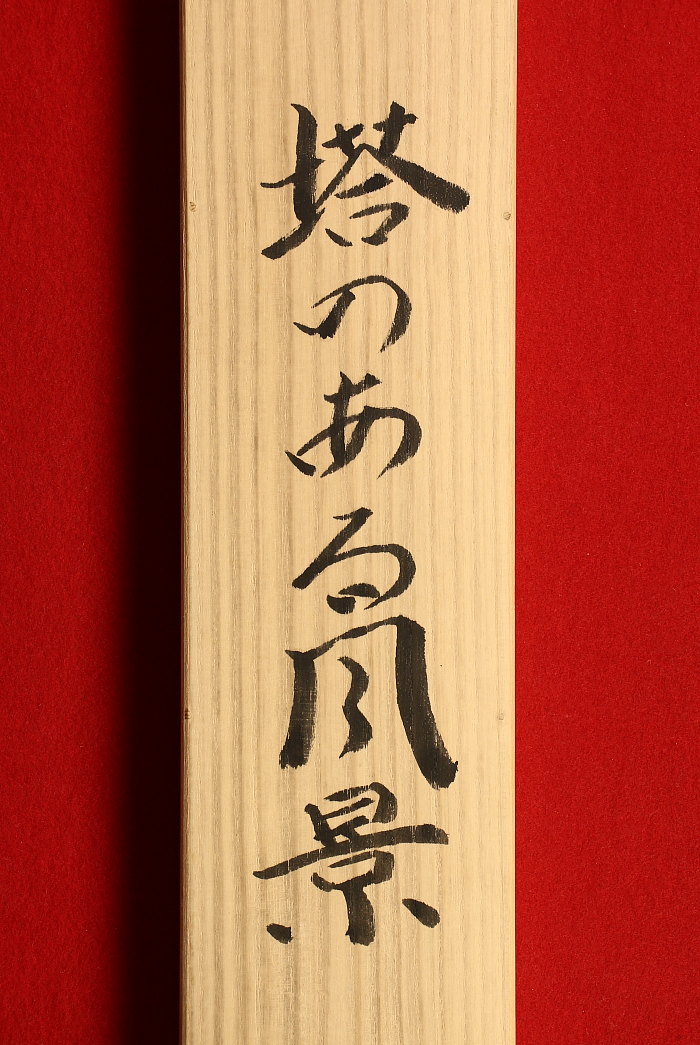 塔のある風景